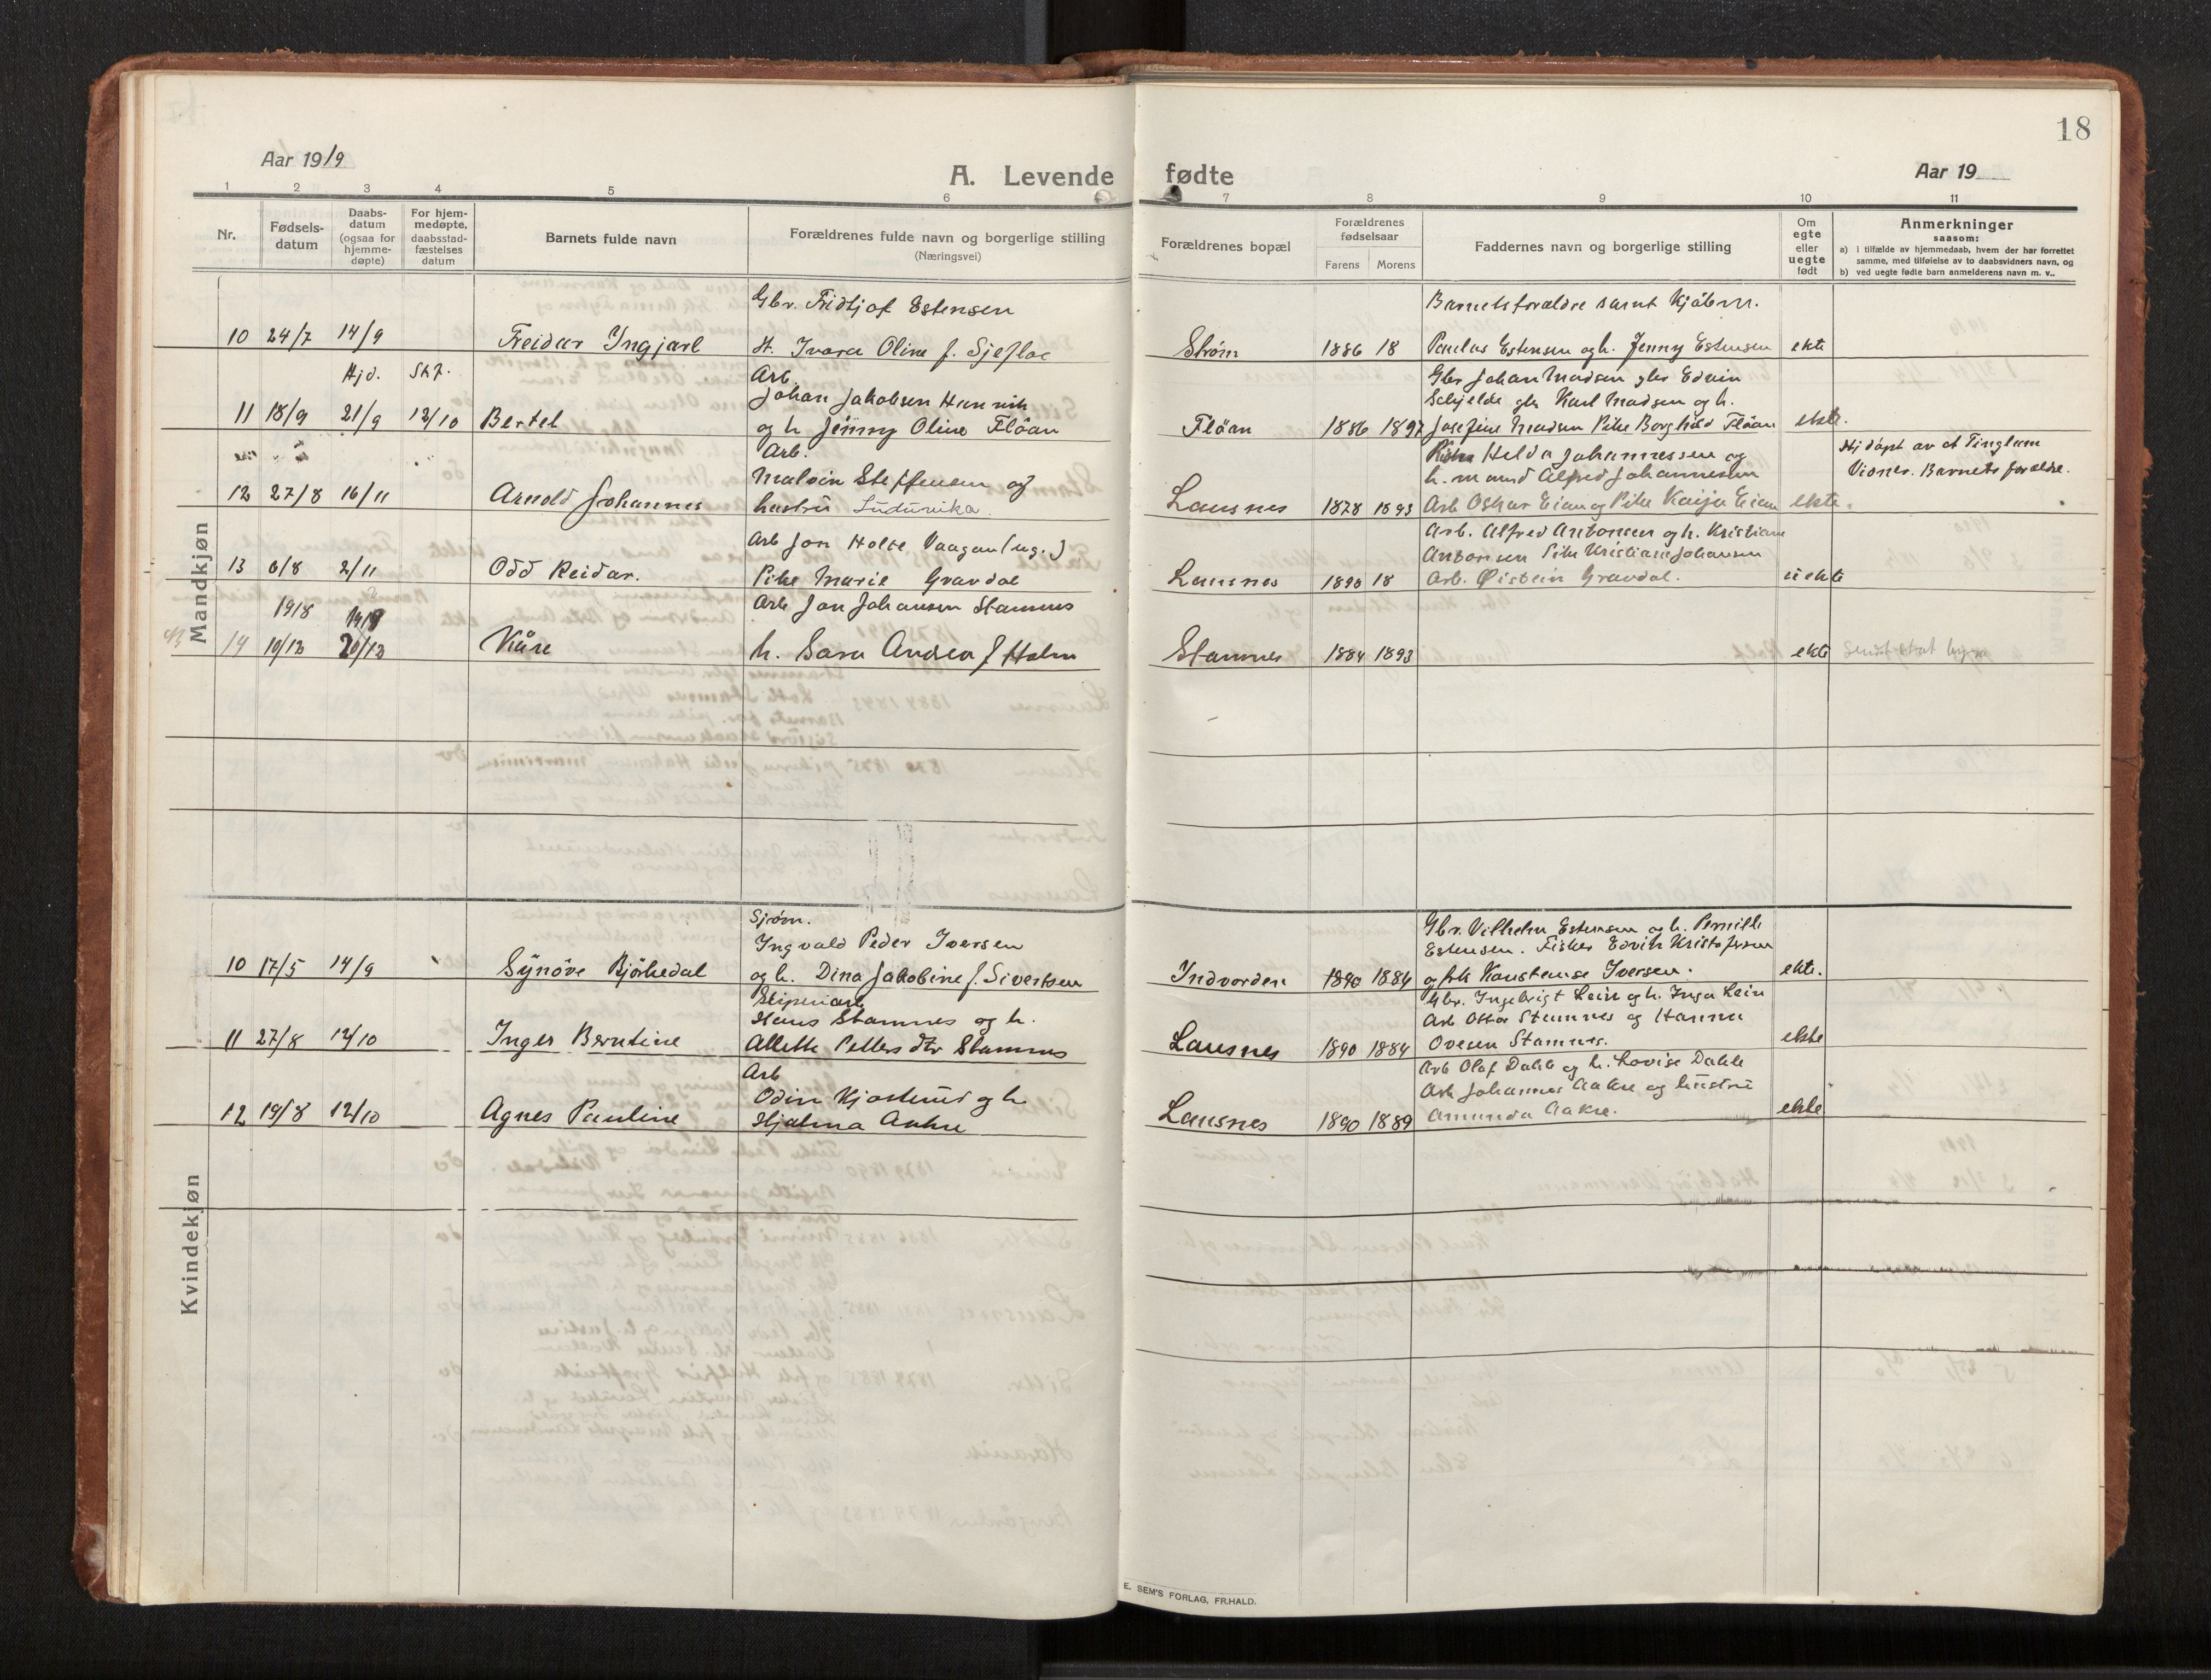 18
Aar 1919
A. Levende fødte
Aar 19
1 2 3 4 5 6 7 8 9 10 11
Nr.
Fødsels-
datum
Daabs-
datum
(ogsaa for
hjemme-
døpte)
For hjem-
medøpte,
daabsstad-
fæstelses
datum
Barnets fulde navn
Forældrenes fulde navn og borgerlige stilling
(Næringsvei)
Forældrenes bopæl
Forældrenes
fødselsaar
Farens Morens
Faddernes navn og borgerlige stilling
Om
egte
eller
uegte
født
Anmerkninger
saasom:
a) i tilfælde av hjemmedaab, hvem der har forrettet
samme, med tilføielse av to daabsvidners navn, og
b) ved uegte fødte barn anmelderens navn m. v..
Mandkjøn
Gbr. Fridtjof Estensen Barnets forældre samt Kjöbm.
10 24/7 14/9 Freidar Ingjarl H. Ivara Oline f. Sjefloe Strøm 1886 18 Paulus Estensen og h. Jenny Estensen ekte
Hjd. Skf. Arb. Gbr Johan Madsen gbr Edvin
Johan Jakobsen Henrik Schjelde gbr Karl Madsen og h.
11 18/9 21/9 12/10 Bertel og h Jenny Oline Flöan Flöan 1886 1897 Josefine Madsen Pike Borghild Flöan ekte.
Arb. Helda Johannessen og Hjdøpt av
Malvin Steffensen og h. mand Alfred Johannessen Vidner. Barnets forældre.
12 27/8 16/11 Arnold Johannes hustru Ludvika Lausnes 1878 1893 Arb Oskar Eian og Pike Kaija Eian ekte.
Arb Jon Holte Vaagan (ug.) Arb. Alfred Antonsen og h. Kristiane
Antonsen Pike Kristiane Johansen
13 6/8 2/11 Odd Reidar. Pike Marie Gravdal Lausnes 1890 18 Arb. Øistein Gravdal. uekte
1918 Arb Jon Johansen Stamnes
14 10/12 20/12 Kåre h. Sara Andea f Holm Stamnes 1884 1893 ekte
Kvindekjøn
Sjøm. Gbr. Vilhelm Estensen og h. Pernille
Ingvald Peder Iversen Estensen. Fisker Edvin Kristofersen
10 17/5 14/9 Synöve Bjöhedal og h. Dina Jakobine f. Sivertsen Indvorden 1890 1884 og frk Konstanse Iversen. ekte.
Gbr. Ingebrigt Lein og h. Inga Lein
Hans Stamnes og h. Arb Ottar Stamnes og Hanna
11 27/8 12/10 Inger Berntine Allette Petters dtr Stamnes Lausnes 1890 1884 Ovesen Stamnes. ekte
Arb Arb Olaf Dahle og h. Lovise Dahle
Odin Kjostund og h Arb Johannes Aakre og hustru
12 19/8 12/10 Agnes Pauline Hjalma Aakre Lausnes 1890 1889 Amunda Aakre. ekte
E. SEM'S FORLAG, FR.HALD.